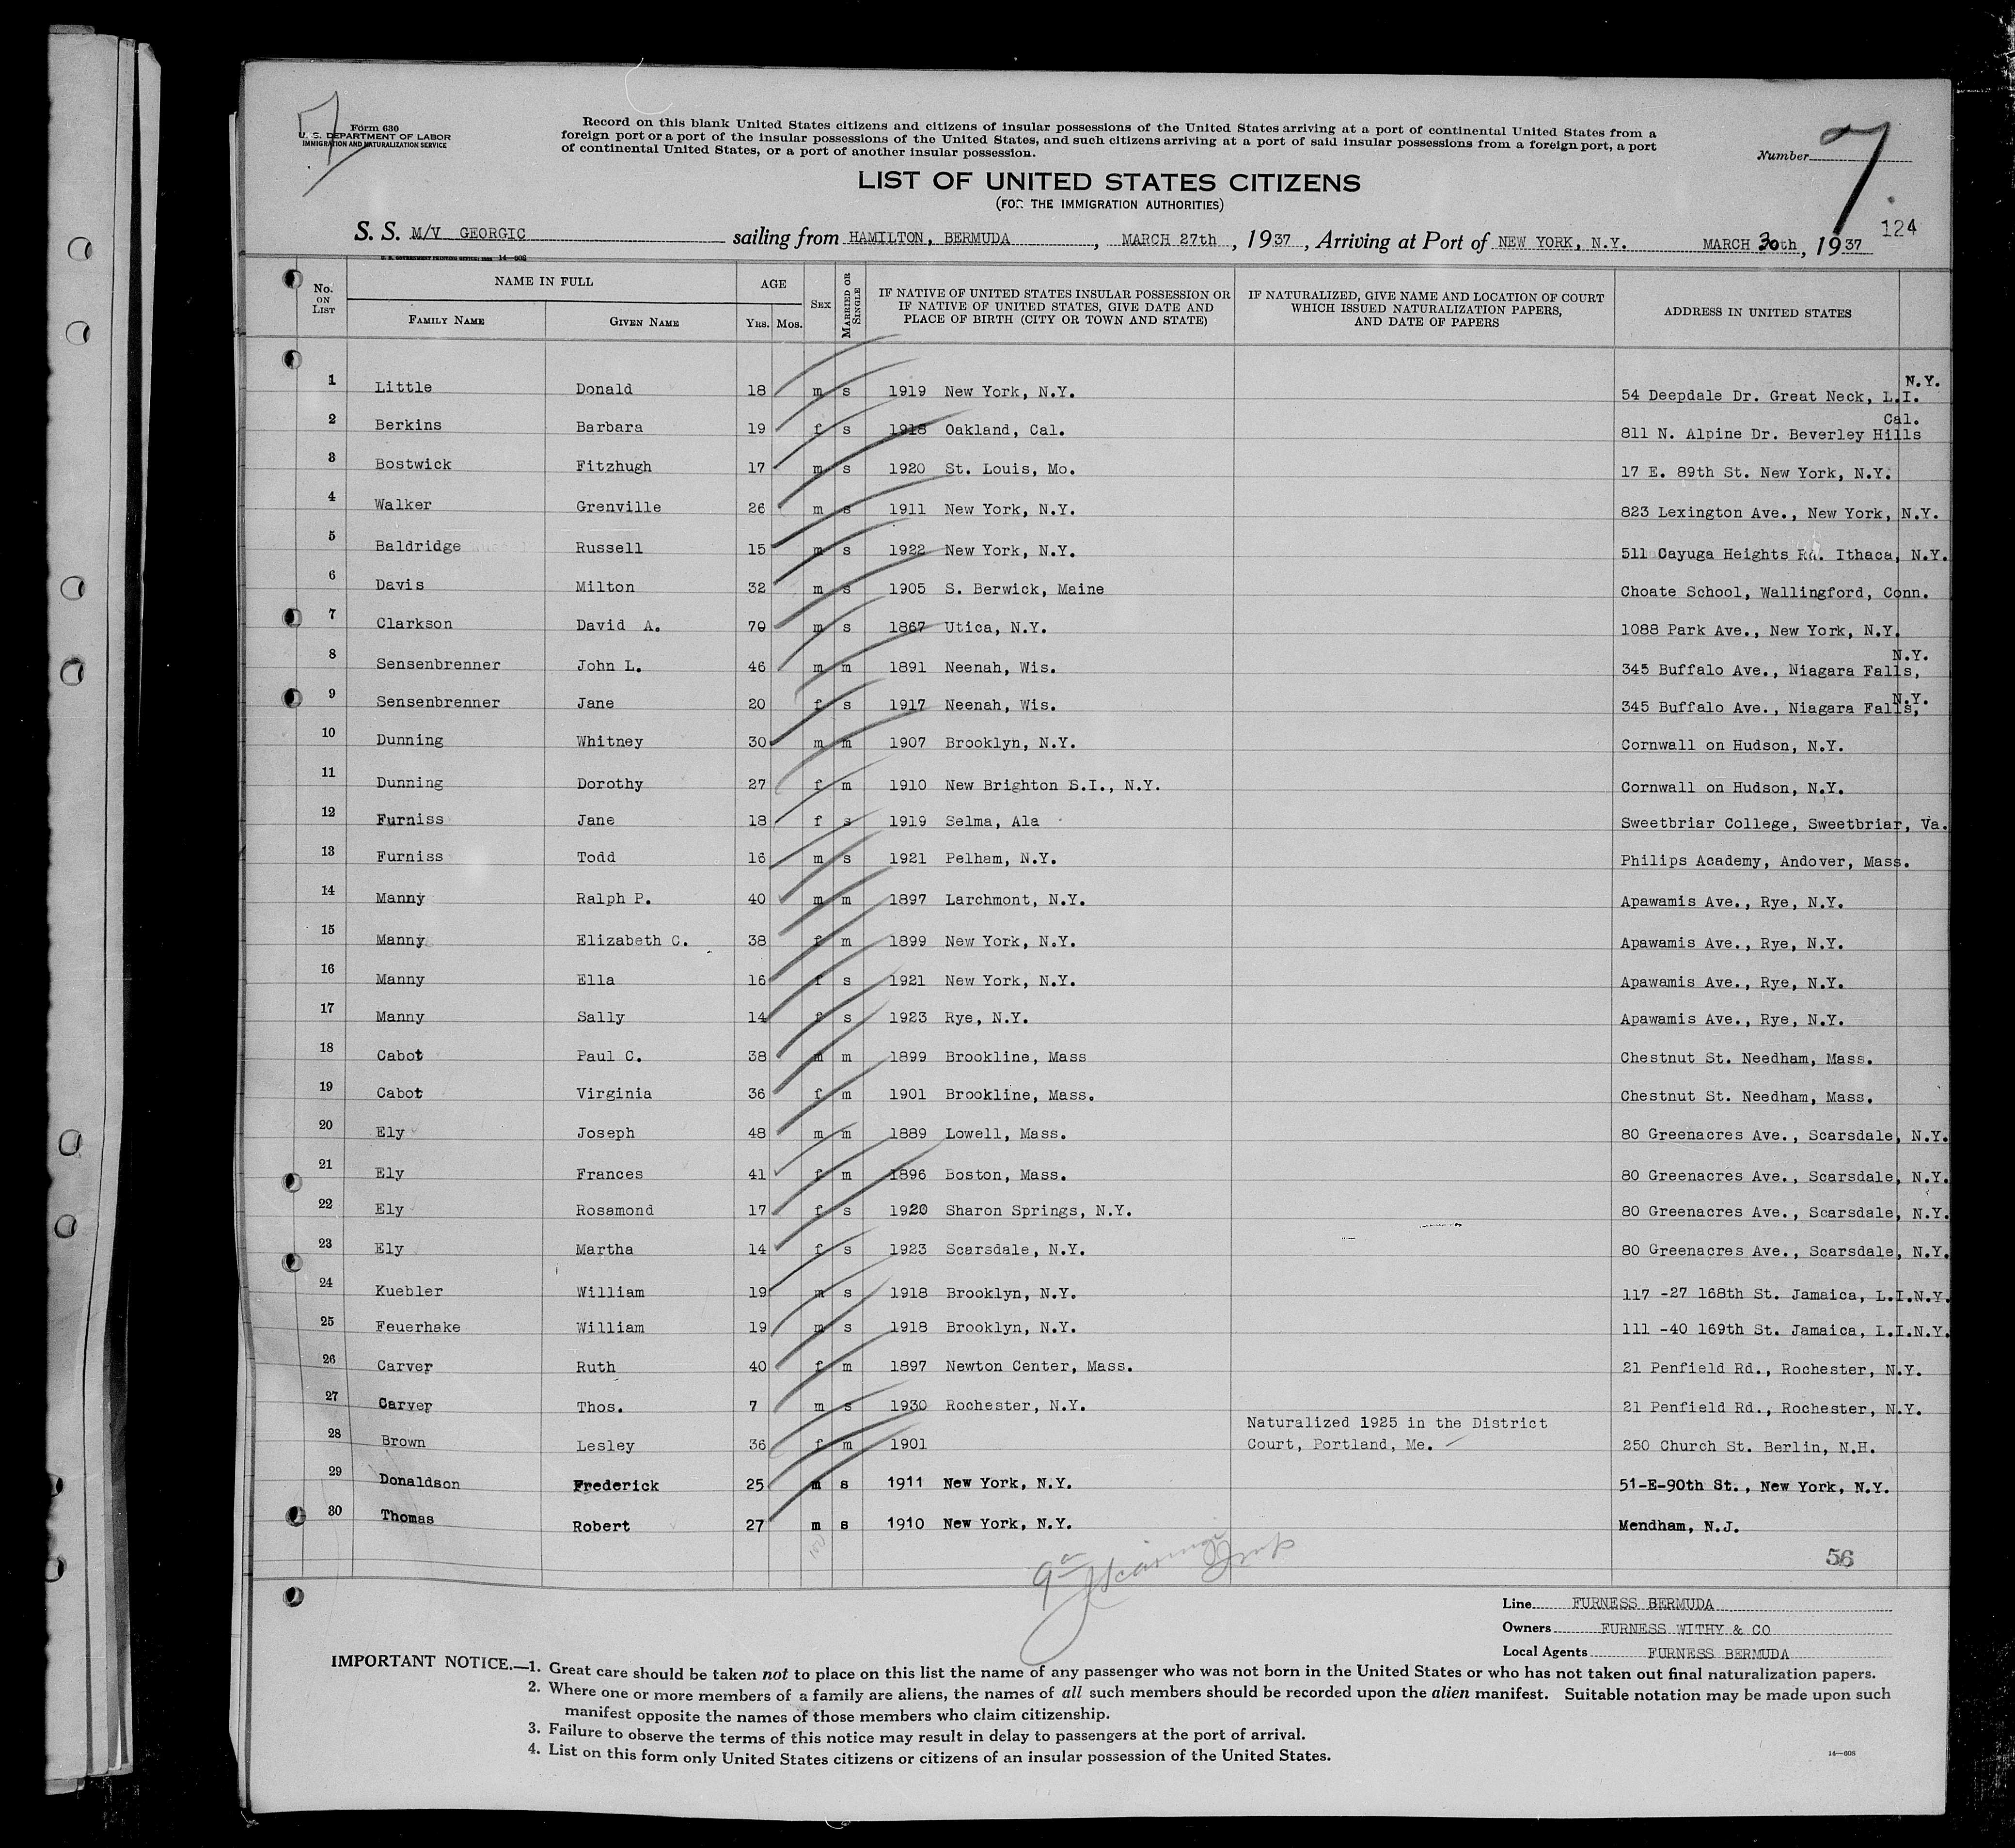 7
Form 630
U. S. DEPARTMENT OF LABOR
IMMIGRATION AND NATURALIZATION SERVICE
Record on this blank United States citizens and citizens of insular possessions of the United States arriving at a port of continental United States from a
foreign port or a port of the insular possessions of the United States, and such citizens arriving at a port of said insular possessions from a foreign port, a port
of continental United States, or a port of another insular possession.
Number 7
LIST OF UNITED STATES CITIZENS
(FOR THE IMMIGRATION AUTHORITIES)
124
S. S. M/V GEORGIC sailing from HAMILTON, BERMUDA, MARCH 27th, 1937, Arriving at Port of NEW YORK, N.Y. MARCH 30th, 1937
U. S. GOVERNMENT PRINTING OFFICE: 14-608
No. ON LIST NAME IN FULL AGE SEX MARRIED OR SINGLE IF NATIVE OF UNITED STATES INSULAR POSSESSION OR IF NATIVE OF UNITED STATES, GIVE DATE AND PLACE OF BIRTH (CITY OR TOWN AND STATE) IF NATURALIZED, GIVE NAME AND LOCATION OF COURT WHICH ISSUED NATURALIZATION PAPERS, AND DATE OF PAPERS ADDRESS IN UNITED STATES
FAMILY NAME GIVEN NAME YRS. MOS.
1 Little Donald 18 m s 1919 New York, N.Y. 54 Deepdale Dr. Great Neck, L.I. N.Y.
2 Berkins Barbara 19 f s 1918 Oakland, Cal. 811 N. Alpine Dr. Beverley Hills Cal.
3 Bostwick Fitzhugh 17 m s 1920 St. Louis, Mo. 17 E. 89th St. New York, N.Y.
4 Walker Grenville 26 m s 1911 New York, N.Y. 823 Lexington Ave., New York, N.Y.
5 Baldridge Russell 15 m s 1922 New York, N.Y. 511 Cayuga Heights Rd. Ithaca, N.Y.
6 Davis Milton 32 m s 1905 S. Berwick, Maine Choate School, Wallingford, Conn.
7 Clarkson David A. 70 m s 1867 Utica, N.Y. 1088 Park Ave., New York, N.Y.
8 Sensenbrenner John L. 46 m m 1891 Neenah, Wis. 345 Buffalo Ave., Niagara Falls, N.Y.
9 Sensenbrenner Jane 20 f s 1917 Neenah, Wis. 345 Buffalo Ave., Niagara Falls, N.Y.
10 Dunning Whitney 30 m m 1907 Brooklyn, N.Y. Cornwall on Hudson, N.Y.
11 Dunning Dorothy 27 f m 1910 New Brighton S.I., N.Y. Cornwall on Hudson, N.Y.
12 Furniss Jane 18 f s 1919 Selma, Ala Sweetbriar College, Sweetbriar, Va.
13 Furniss Todd 16 m s 1921 Pelham, N.Y. Philips Academy, Andover, Mass.
14 Manny Ralph P. 40 m m 1897 Larchmont, N.Y. Apawamis Ave., Rye, N.Y.
15 Manny Elizabeth C. 38 f m 1899 New York, N.Y. Apawamis Ave., Rye, N.Y.
16 Manny Ella 16 f s 1921 New York, N.Y. Apawamis Ave., Rye, N.Y.
17 Manny Sally 14 f s 1923 Rye, N.Y. Apawamis Ave., Rye, N.Y.
18 Cabot Paul C. 38 m m 1899 Brookline, Mass Chestnut St. Needham, Mass.
19 Cabot Virginia 36 f m 1901 Brookline, Mass. Chestnut St. Needham, Mass.
20 Ely Joseph 48 m m 1889 Lowell, Mass. 80 Greenacres Ave., Scarsdale, N.Y.
21 Ely Frances 41 f m 1896 Boston, Mass. 80 Greenacres Ave., Scarsdale, N.Y.
22 Ely Rosamond 17 f s 1920 Sharon Springs, N.Y. 80 Greenacres Ave., Scarsdale, N.Y.
23 Ely Martha 14 f s 1923 Scarsdale, N.Y. 80 Greenacres Ave., Scarsdale, N.Y.
24 Kuebler William 19 m s 1918 Brooklyn, N.Y. 117 -27 168th St. Jamaica, L.I.N.Y.
25 Feuerhake William 19 m s 1918 Brooklyn, N.Y. 111 -40 169th St. Jamaica, L.I.N.Y.
26 Carver Ruth 40 f m 1897 Newton Center, Mass. 21 Penfield Rd., Rochester, N.Y.
27 Carver Thos. 7 m s 1930 Rochester, N.Y. 21 Penfield Rd., Rochester, N.Y.
28 Brown Lesley 36 f m 1901 Naturalized 1925 in the District Court, Portland, Me. 250 Church St. Berlin, N.H.
29 Donaldson Frederick 25 m s 1911 New York, N.Y. 51-E-90th St., New York, N.Y.
30 Thomas Robert 27 m s 1910 New York, N.Y. Mendham, N.J.
56
Line FURNESS BERMUDA
Owners FURNESS WITHY & CO
Local Agents FURNESS BERMUDA
IMPORTANT NOTICE.—1. Great care should be taken not to place on this list the name of any passenger who was not born in the United States or who has not taken out final naturalization papers.
2. Where one or more members of a family are aliens, the names of all such members should be recorded upon the alien manifest. Suitable notation may be made upon such
manifest opposite the names of those members who claim citizenship.
3. Failure to observe the terms of this notice may result in delay to passengers at the port of arrival.
4. List on this form only United States citizens or citizens of an insular possession of the United States.
14—608